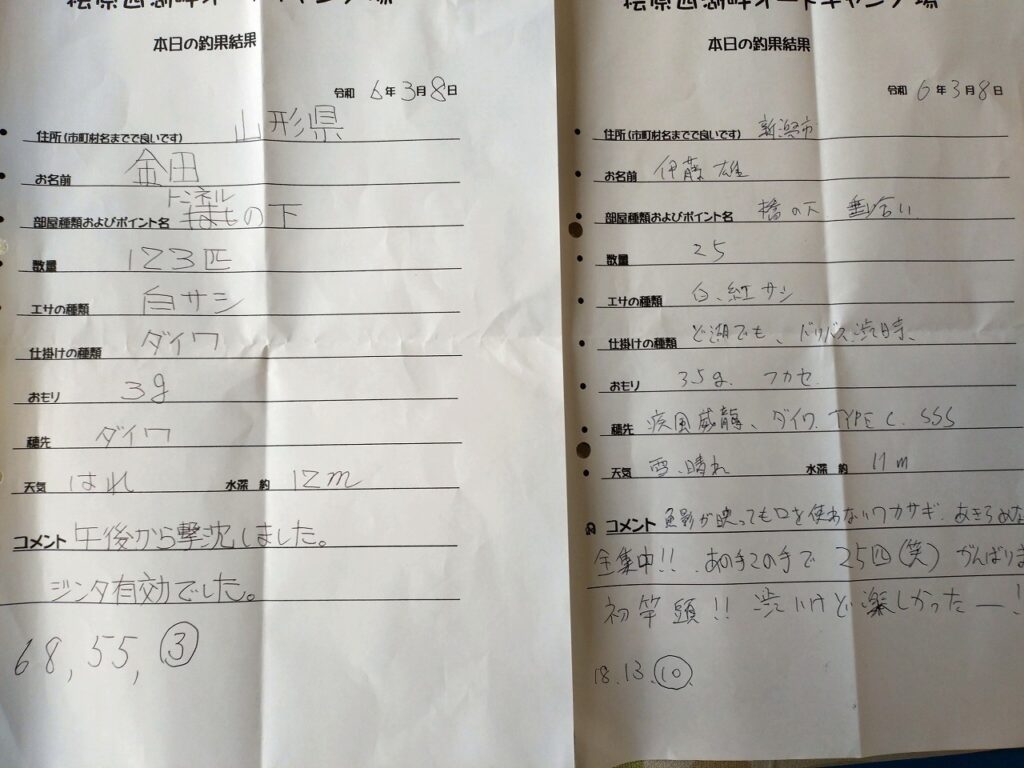 桧原西湖畔オートキャンプ場
本日の釣果結果
令和 6年3月8日
住所(市町村名までで良いです) 山形県
お名前 金田
トンネル
部屋種類およびポイント名 の下
数量 123匹
エサの種類 白サシ
仕掛けの種類 ダイワ
おもり 3g
穂先 ダイワ
天気 はれ 水深 約 12m
コメント 午後から撃沈しました。
ジンタ有効でした。
68, 55, ③
桧原西湖畔オートキャンプ場
本日の釣果結果
令和 6年3月8日
住所(市町村名までで良いです) 新潟市
お名前 伊藤 雄
部屋種類およびポイント名 橋の下 乗合い
数量 25
エサの種類 白、紅サシ
仕掛けの種類 ど湖でも、ドリバス、渋り時、
おもり 3.5g. フカセ
穂先 疾風威龍、ダイワ TYPE C. SSS
天気 雪、晴れ 水深 約 11m
コメント 魚影が映っても口を使わないワカサギ、あきらめな
全集中!! あの手この手で 25匹(笑) がんばりま
初竿頭!! 渋いけど楽しかったー!
18.13.⑩